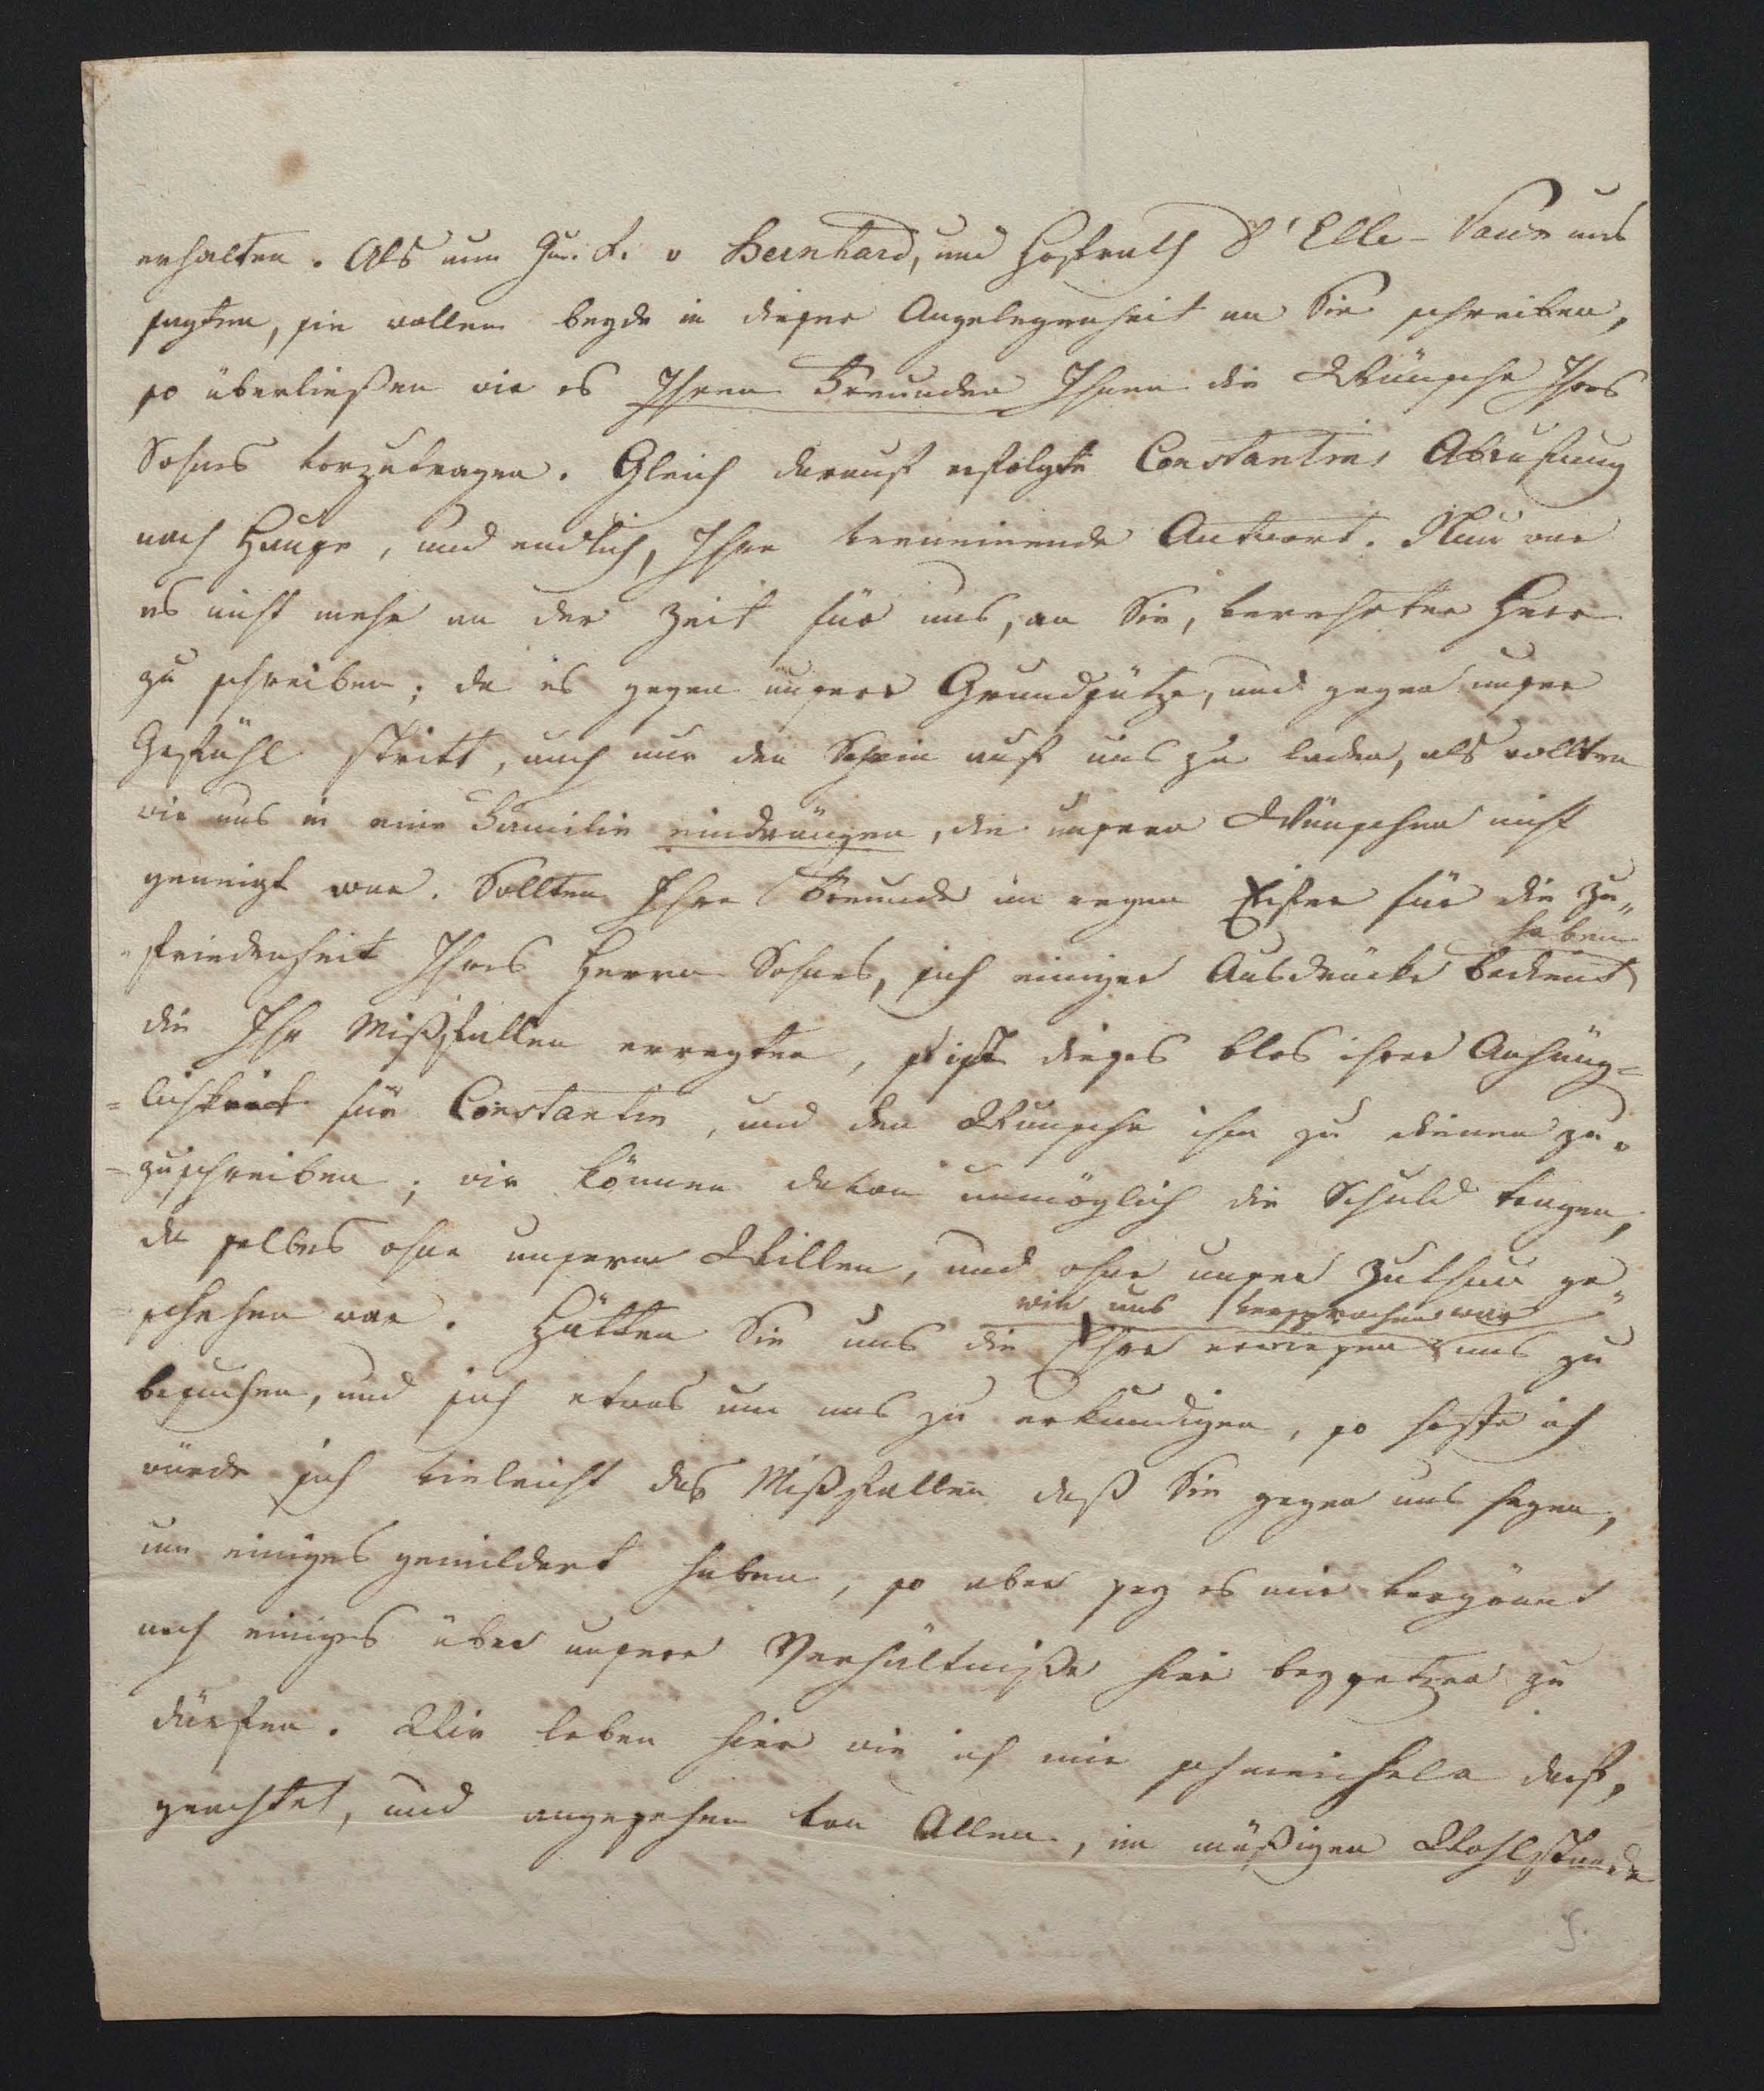 erhalten. Als nun Hr. F. v Bernhard, und Hofrath D'Elle-Vaux uns
sagten, sie wollen beyde in dieser Angelegenheit an Sie schreiben,
so überließen wir es Ihren Freunden Ihnen die Wünsche Ihres
Sohnes vorzutragen. Gleich darauf erfolgte Constantins Abrufung
nach Hause, und endlich, Ihre verneinende Antwort. Nun war
es nicht mehr an der Zeit für uns, an Sie, verehrter Herr
zu schreiben; da es gegen unsere Grundsätze, und gegen unser
Gefühl stritt, auch nur den Schein auf uns zu laden, als wollten
wir uns in eine Familie eindrängen, die unsern Wünschen nicht
geneigt war. Sollten Ihre Freunde im regen Eifer für die Zu„
haben
„friedenheit Ihres Herrn Sohnes, sich einiger Ausdrücke bedient
die Ihr Mißfallen erregten, ist dieses blos ihrer Anhäng=
=lichkeit für Constantin, und den Wunsche ihm zu dienen zu=
=zuschreiben; wir können davon unmöglich die Schuld tragen,
da selbes ohne unserm Willen, und ohne unser Zuthun ge=
wie uns versprochen war
=schehen war. Hätten Sie uns die Ehre erwiesen uns zu
besuchen, und sich etwas um uns zu erkundigen, so hoffe ich
würde sich vieleicht das Mißfallen daß Sie gegen uns hegen,
um einiges gemildert haben, so aber sey es mir vergönnt
noch einiges über unsere Verhältniße hier beysetzen zu
dürfen. Wir leben hier wie ich mir schmeicheln darf,
geachtet, und angesehen von Allen, im mäßigen Wohlstande
5.